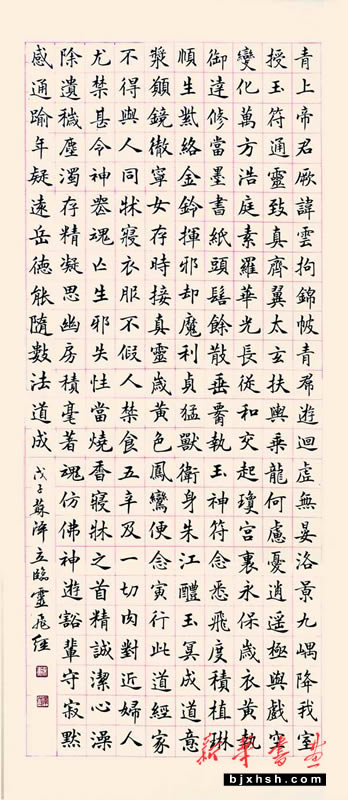 青上帝君厥諱雲拘錦帔青帬遊迴虛無晏洛景九嵎降我室
授玉符通靈致真齊翼太玄扶輿乘龍何慮憂逍遙極與戲空
變化萬方浩庭素羅華光長従和交起瓊宮裏永保歲衣黃執
御達修當墨書紙頭髻餘散垂執玉神符念悉飛度積植琳
順生紫絡金鈴揮邪却魔利貞猛獸衛身朱江醴玉冥成道意
漿顏鏡徹寧女存時接真靈歲黃色鳳鸞便念寅行此道經家
不得與人同牀寢衣服不假人禁食五辛及一切肉對近婦人
尤禁甚令神喪魂亡生邪失性當燒香寢牀之首精誠潔心澡
除遺穢塵濁存精凝思幽房積毫著魂仿佛神遊豁輩守寂默
感通踰年疑遠岳德能隨數法道成
戊子蘇立臨靈飛経
新华书画
bjxhsh.com